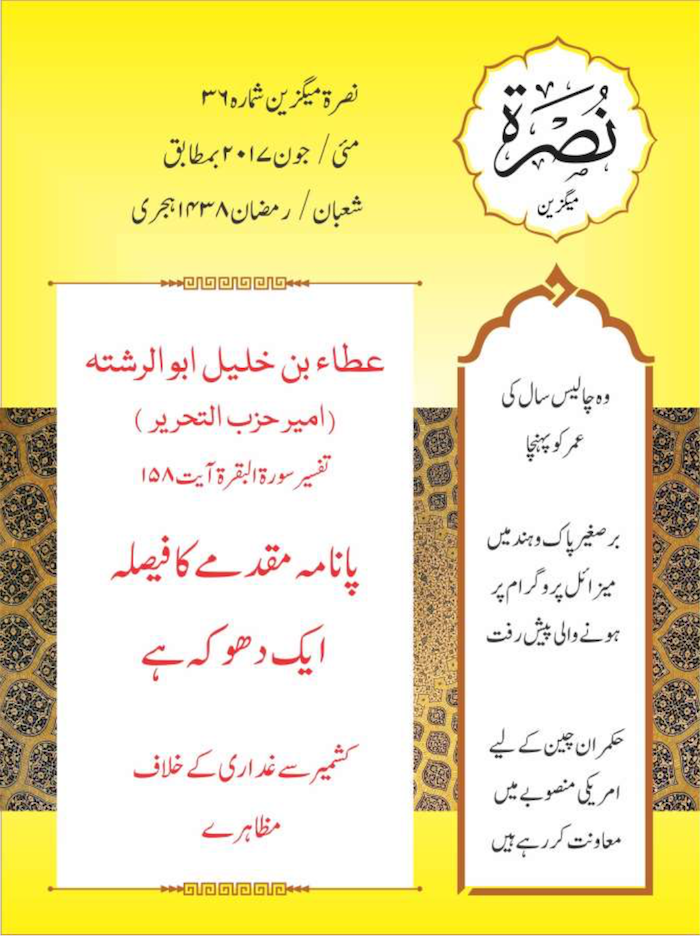 نُصْرَة
میگزین
نصرۃ میگزین شمارہ ۳۶
مئی / جون ۲۰۱۷ بمطابق
شعبان / رمضان ۱۴۳۸ ہجری
وہ چالیس سال کی
عمر کو پہنچا
برصغیر پاک و ہند میں
میزائل پروگرام پر
ہونے والی پیش رفت
حکمران چین کے لیے
امریکی منصوبے میں
معاونت کر رہے ہیں
عطاء بن خلیل ابو الرشتہ
(امیر حزب التحریر)
تفسیر سورۃ البقرۃ آیت ۱۵۸
پانامہ مقدمے کا فیصلہ
ایک دھوکہ ہے
کشمیر سے غداری کے خلاف
مظاہرے